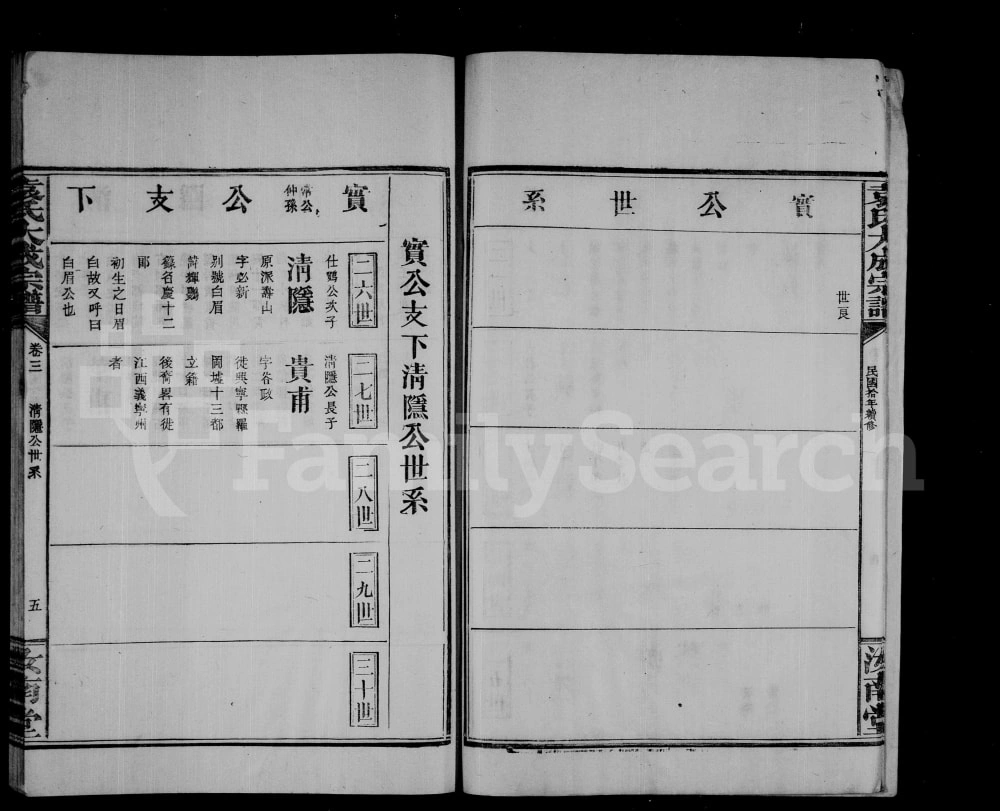 袁氏大成宗譜
民國拾年續修
汝南堂
實公世系
世良
實公支下清隱公世系
實
常公
仲孫
公支下
二六世
仕鶚公次子
清隱
原派壽山
字必新
別號白眉
初生之日眉
白故又呼曰
白眉公也
二七世
清隱公長子
貴甫
字各政
徙興寧縣羅
岡墟十三都
立籍
後裔畧有徙
江西義寧州
者
二八世
二九世
三十世
袁氏大成宗譜
卷三
清隱公世系
五
汝南堂
FamilySearch